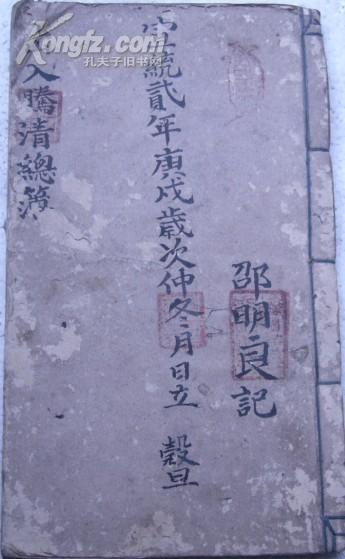 Kongfz.com
孔夫子旧书网
邵明良記
宣統貳年庚戌歲次仲冬月日立 穀旦
入謄清總簿